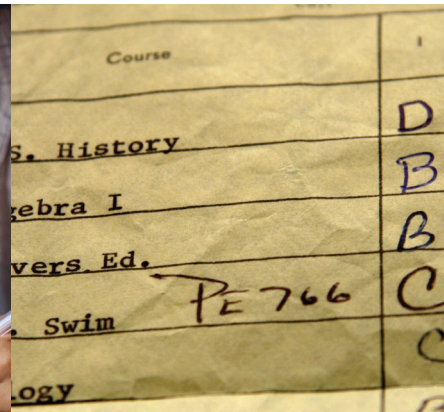 Course 1
S. History D
gebra I B
vers Ed. B
. Swim PE 766 C
ogy C